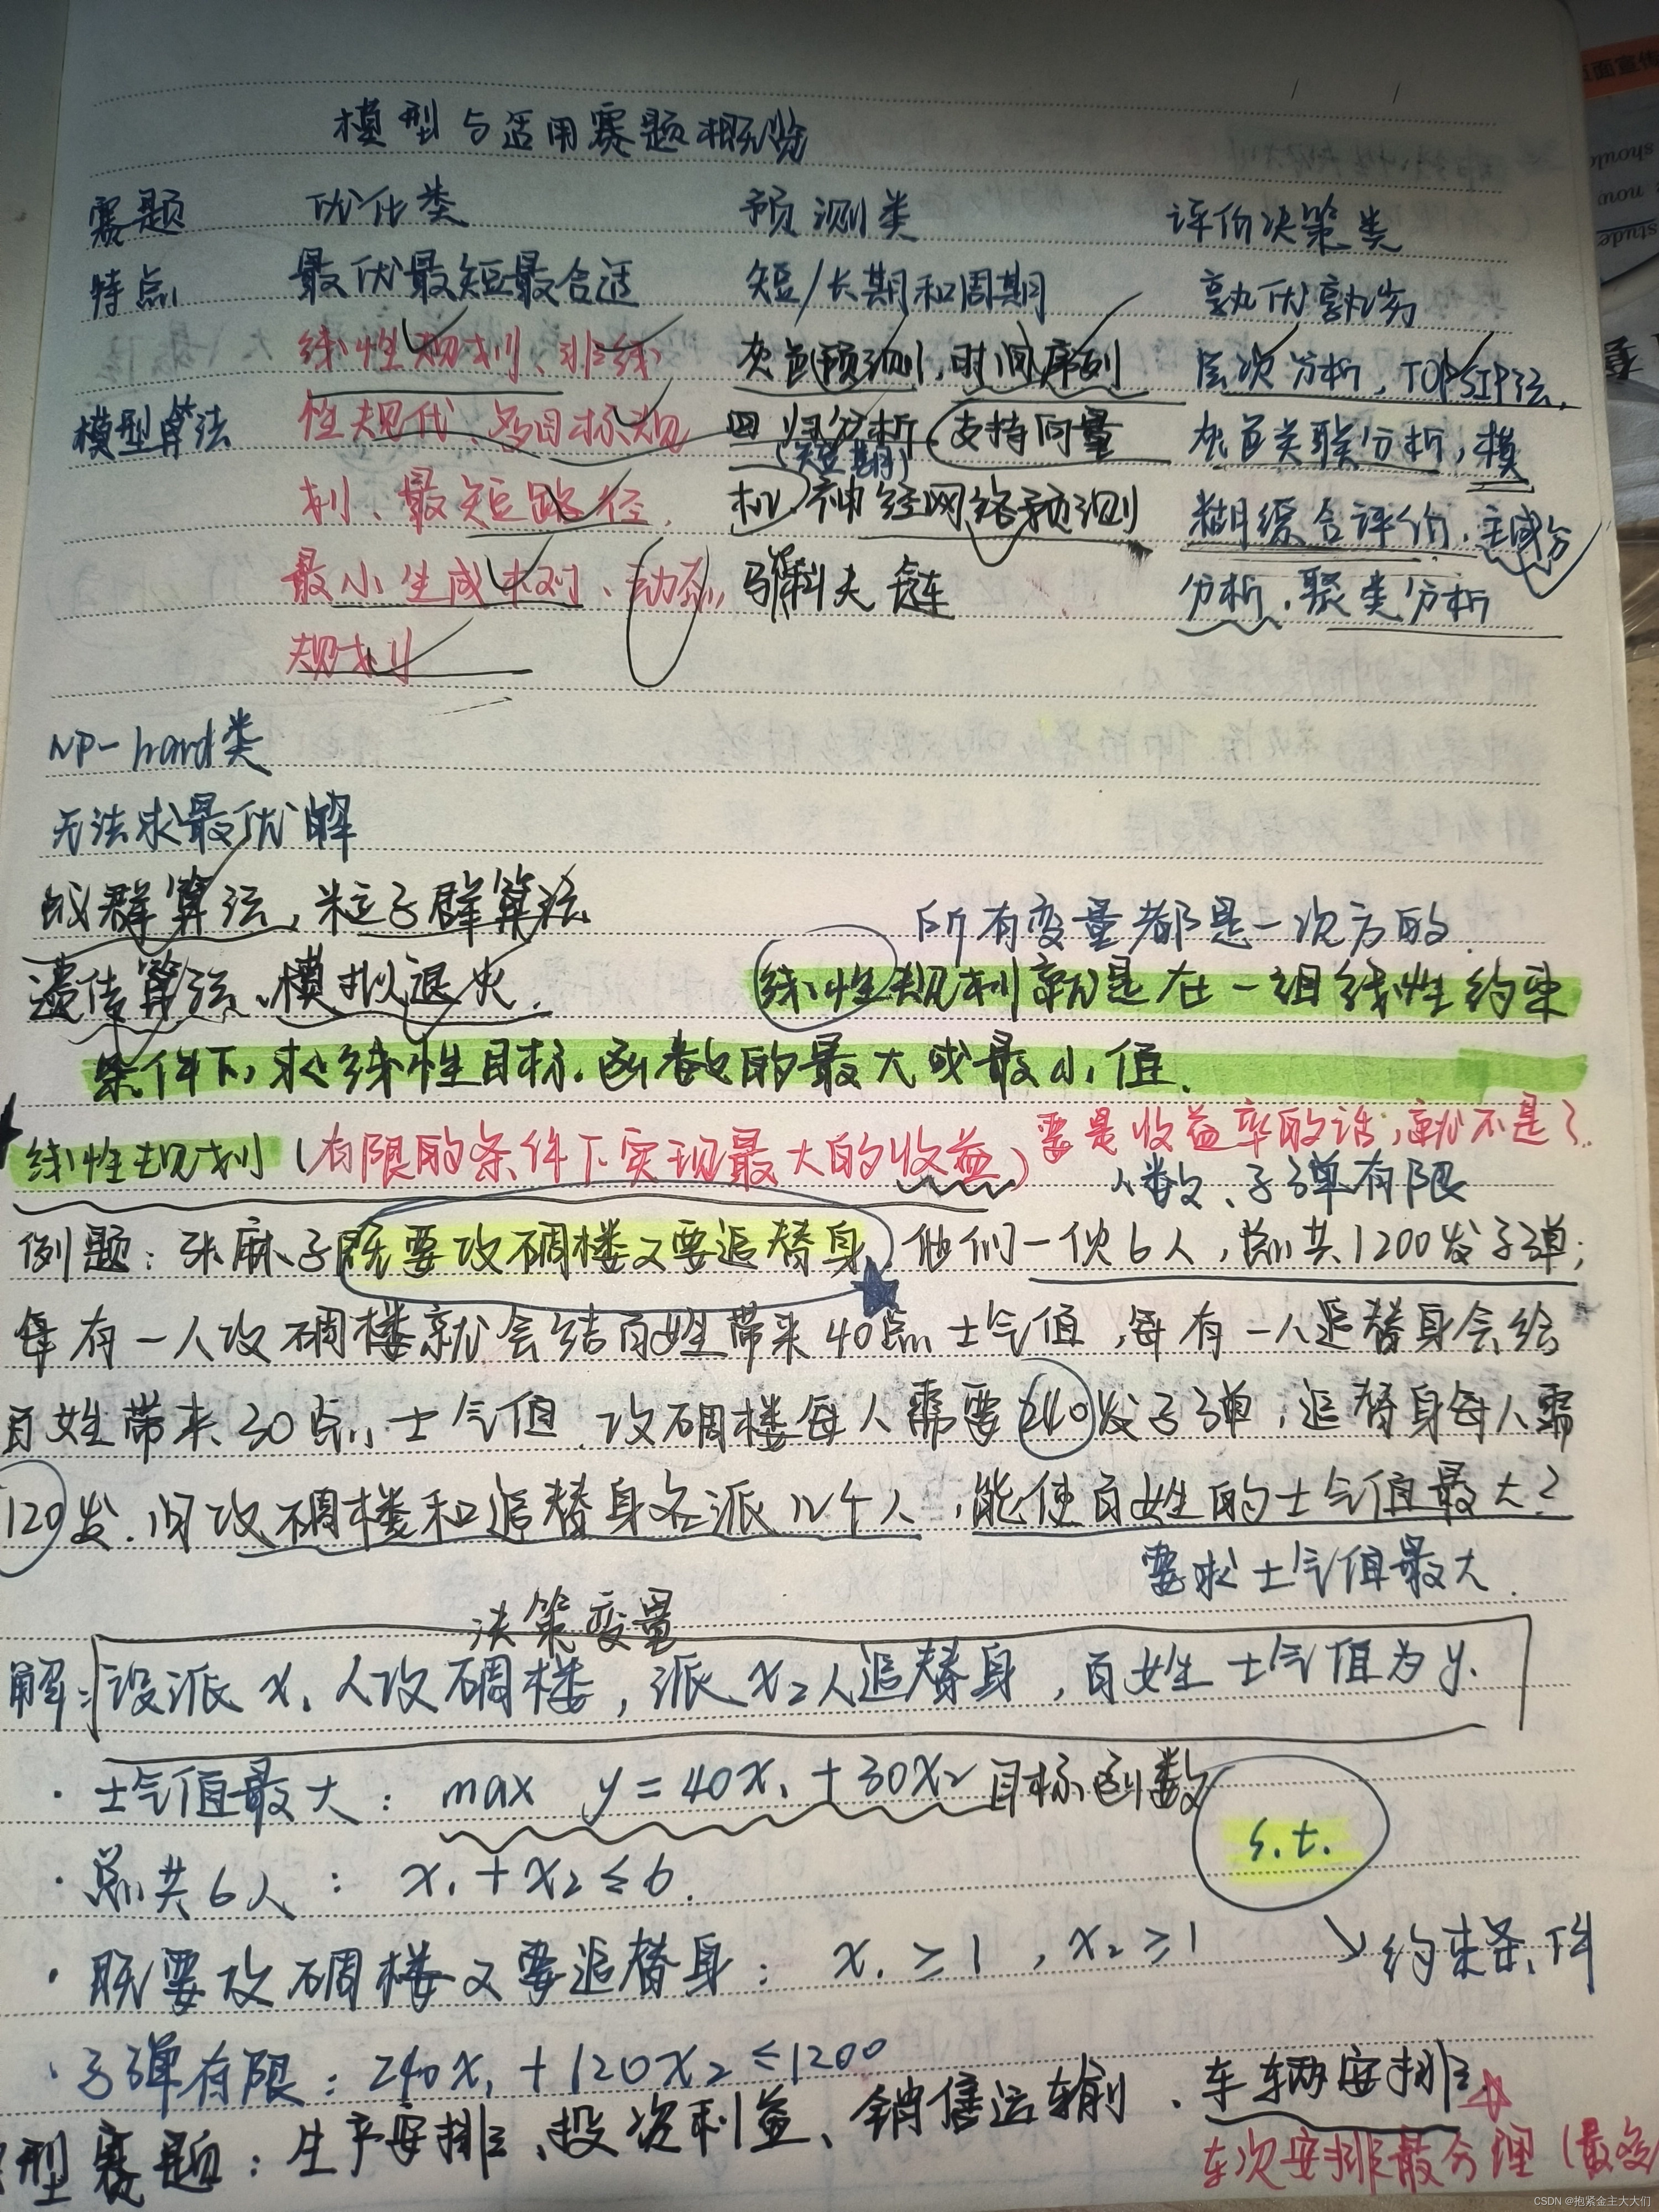 模型与适用赛题概览
赛题 优化类 预测类 评价决策类
特点 最优最短最合适 短/长期和周期 孰优孰劣
线性规划、非线 灰色预测,时间序列 层次分析,TOPSIP法,
模型算法 性规代、多目标规 回归分析,支持向量 灰色关联分析,模
(短期)
划、最短路径, 机,神经网络预测 糊综合评价,主成分
最小生成树、动态 马尔科夫链 分析,聚类分析
规划
NP-hard类
无法求最优解
蚁群算法,粒子群算法
所有变量都是一次方的.
遗传算法、模拟退火. 线性规划就是在一组线性约束
条件下,求线性目标函数的最大或最小值.
线性规划(有限的条件下实现最大的收益)要是收益率的话,就不是了.
人数、子弹有限
例题:张麻子既要攻碉楼又要追替身,他们一伙6人,总共1200发子弹;
每有一人攻碉楼就会给百姓带来40点士气值,每有一人追替身会给
百姓带来30点士气值.攻碉楼每人需要240发子弹,追替身每人需
120发.问攻碉楼和追替身各派几个人,能使百姓的士气值最大?
要求士气值最大.
决策变量
解:设派x₁人攻碉楼,派x₂人追替身,百姓士气值为y.
·士气值最大: max y=40x₁+30x₂ 目标函数
s.t.
·总共6人: x₁+x₂≤6.
·既要攻碉楼又要追替身: x₁≥1,x₂≥1 ↘约束条件
·子弹有限:240x₁+120x₂≤1200
型赛题:生产安排、投资利益、销售运输、车辆安排☆
车次安排最合理(最多
CSDN @抱紧金主大大们